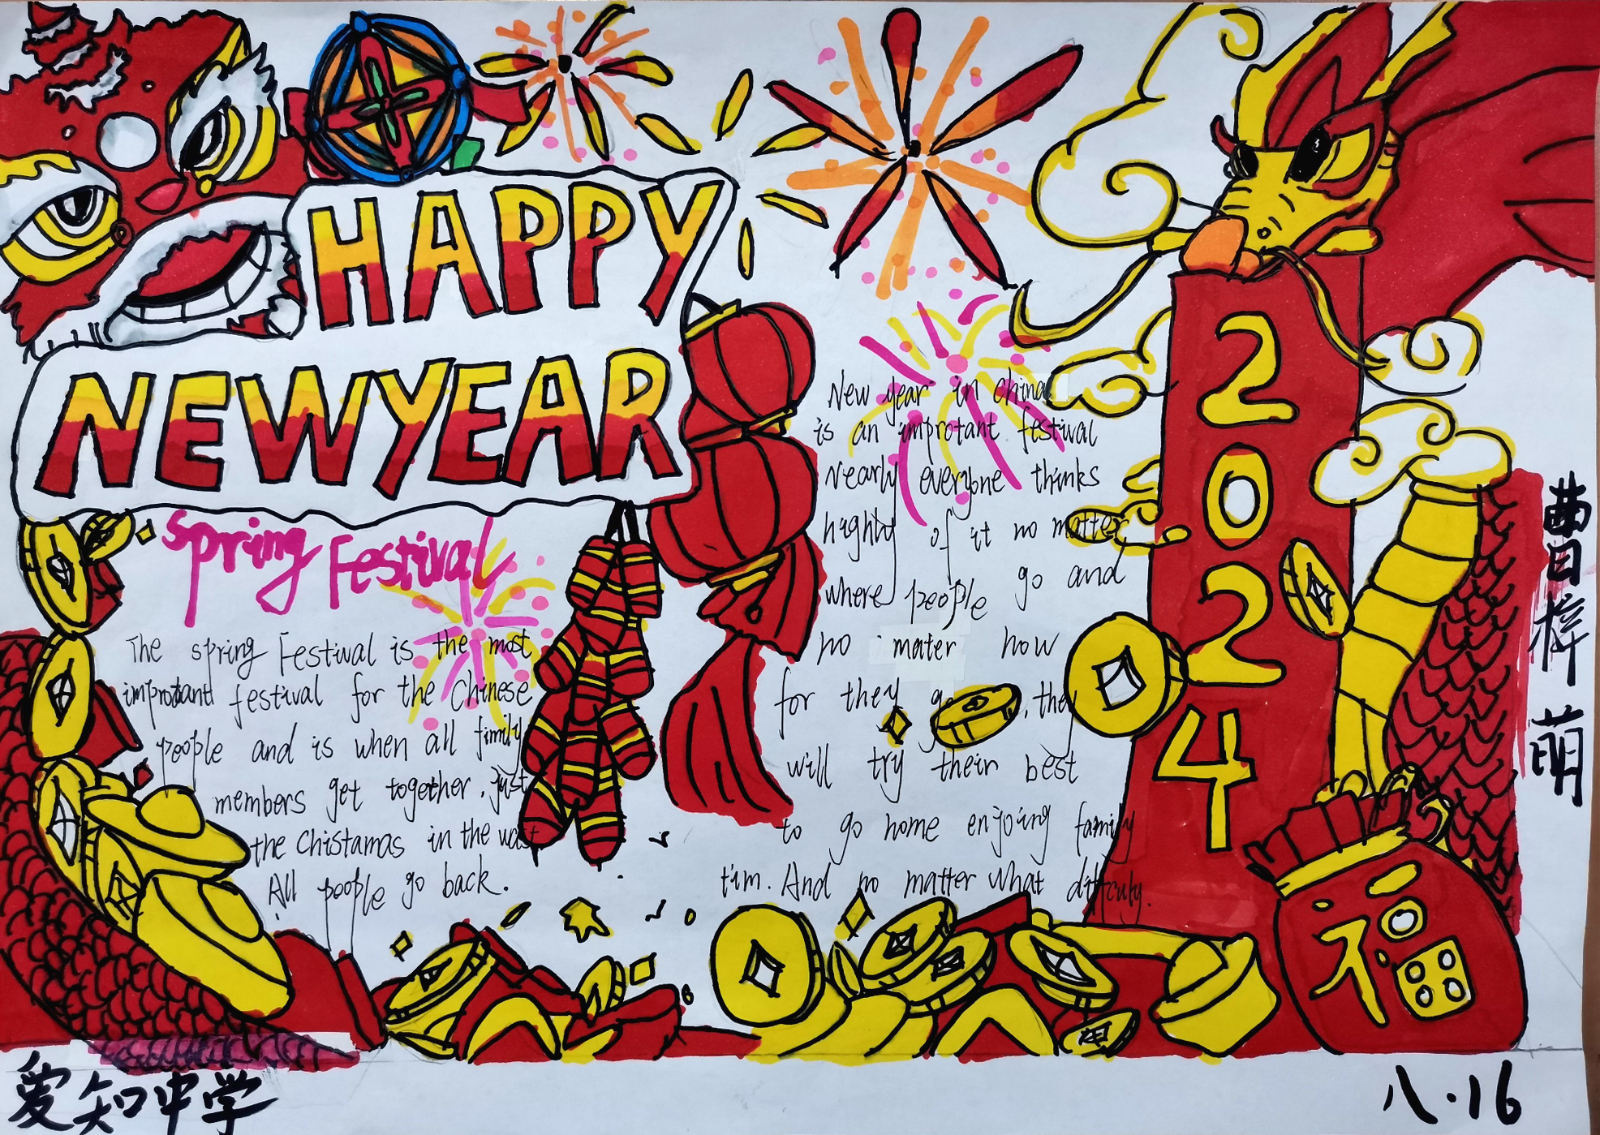 HAPPY
NEWYEAR
Spring Festival
The spring Festival is the most
improtant festival for the Chinese
people and is when all fimily
members get together. just
the Chistamas in the wast
All people go back.
New year in china
is an improtant festival
Nearly everyone thinks
highty of it no matter
where people go and
no mater how
for they go , they
will try their best
to go home enjoing family
tim. And no matter what diffculy.
2024
福
曹梓萌
爱知中学
八.16